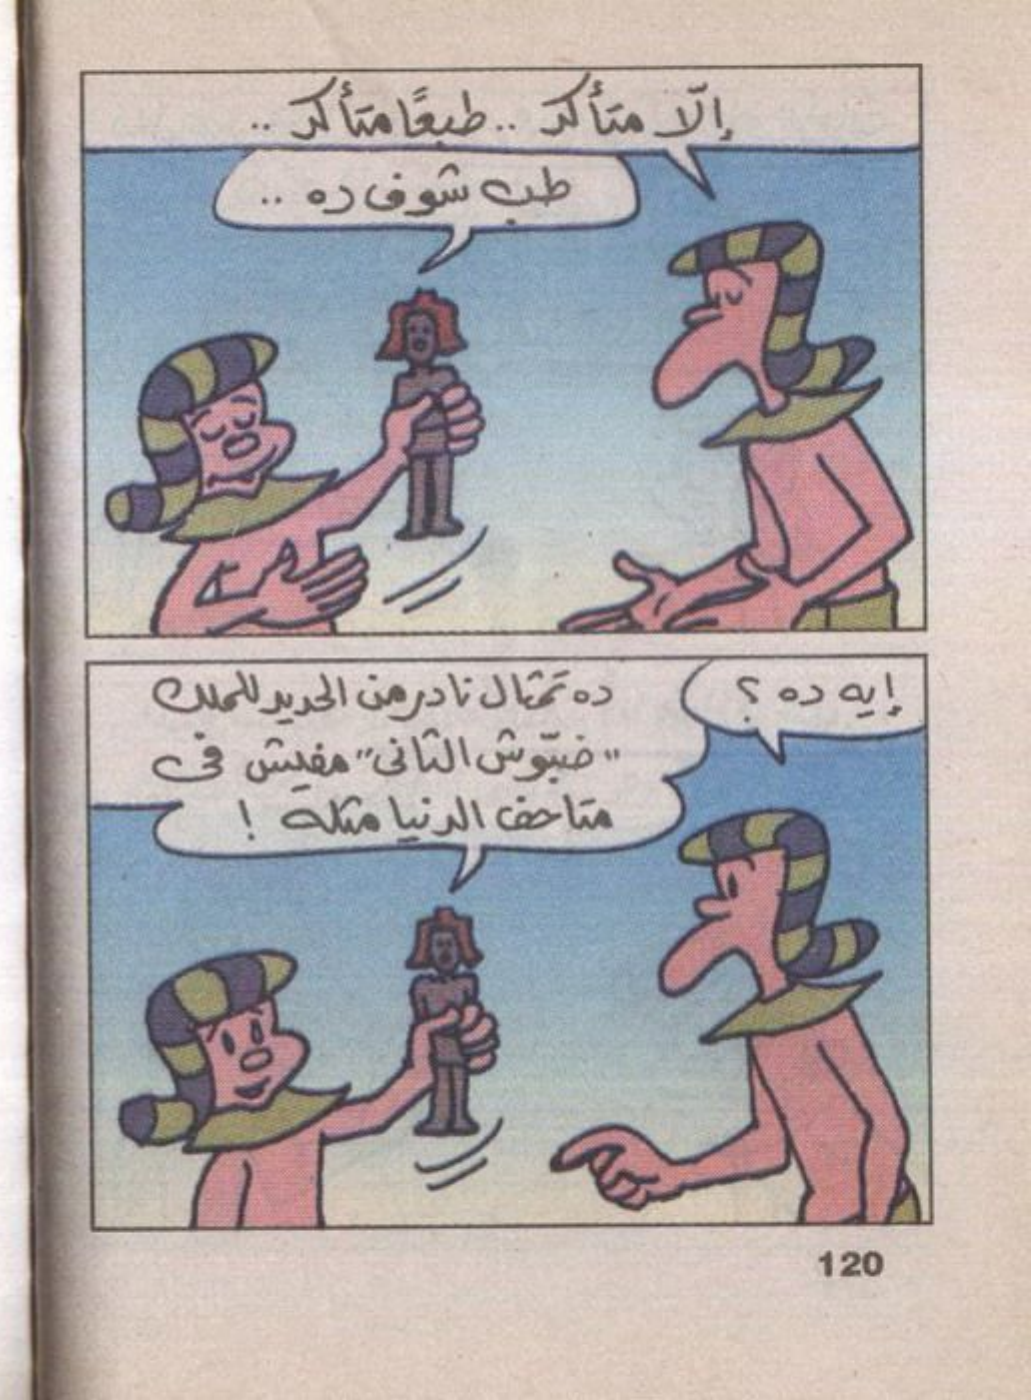 إلّا متأكد .. طبعًا متأكد ..
طب شوف ده ..
إيه ده ؟
ده تمثال نادر من الحديد للملك
"خبّوش الثانى" مفيش فى
متاحف الدنيا مثله !
120